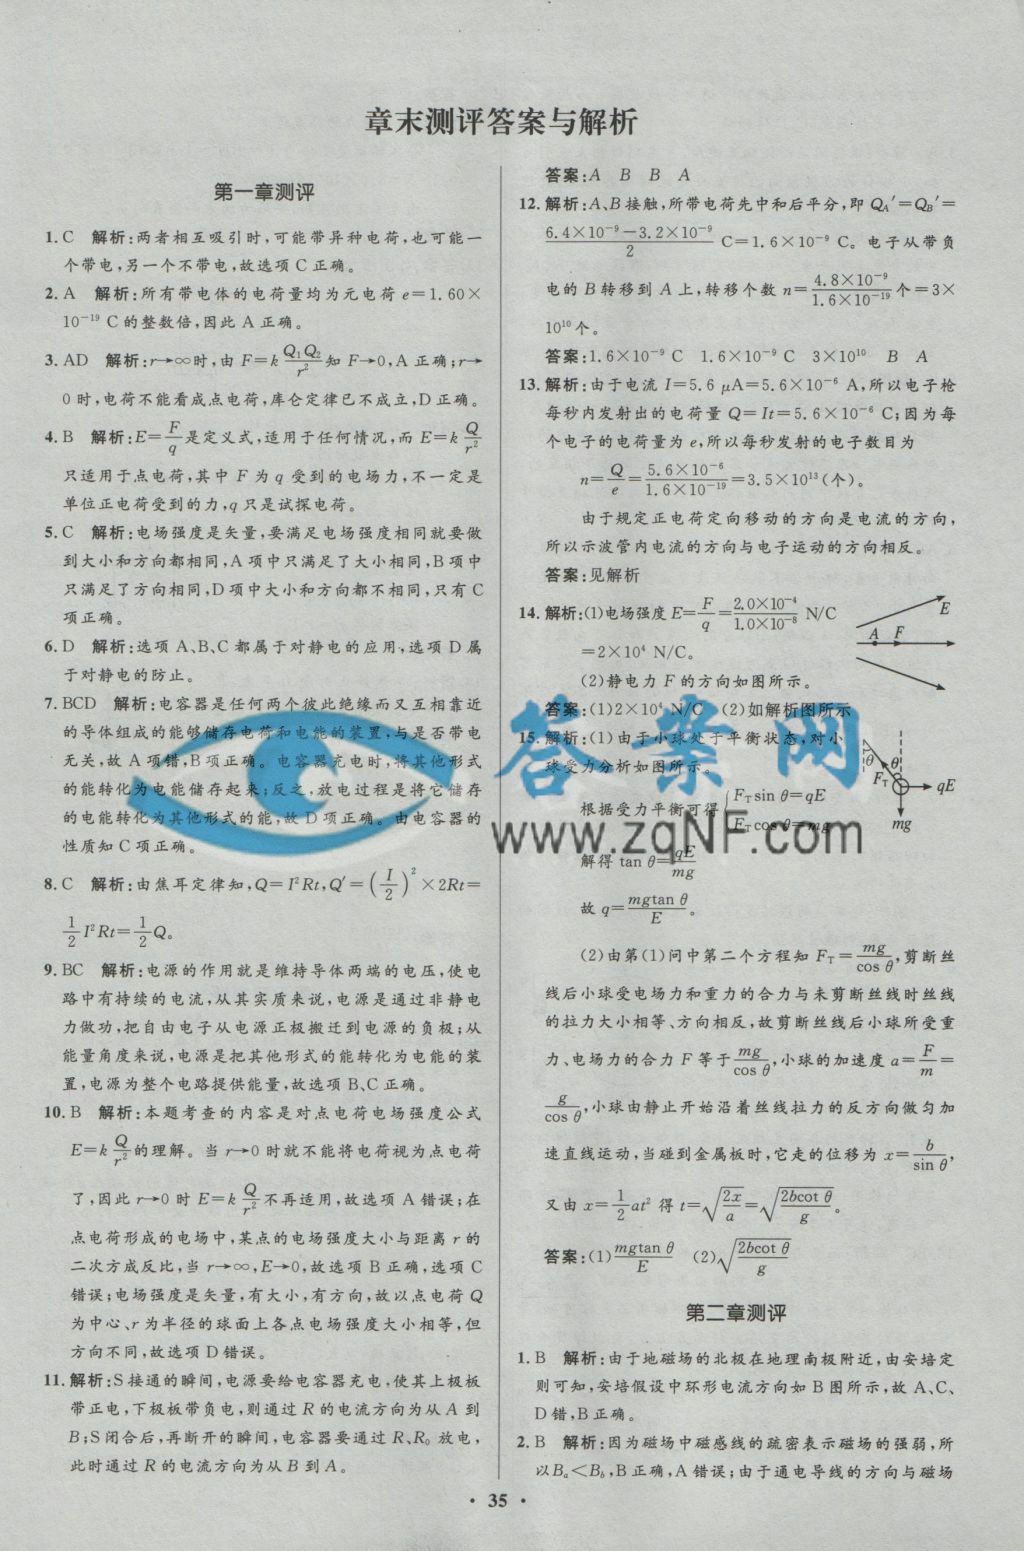 章末测评答案与解析
第一章测评
1. C 解析:两者相互吸引时,可能带异种电荷,也可能一
个带电,另一个不带电,故选项 C 正确。
2. A 解析:所有带电体的电荷量均为元电荷 e=1.60×
10⁻¹⁹ C 的整数倍,因此 A 正确。
3. AD 解析:r→∞时,由 F=k Q₁Q₂/r² 知 F→0,A 正确;r→
0 时,电荷不能看成点电荷,库仑定律已不成立,D 正确。
4. B 解析:E=F/q 是定义式,适用于任何情况,而 E=k Q/r²
只适用于点电荷,其中 F 为 q 受到的电场力,不一定是
单位正电荷受到的力,q 只是试探电荷。
5. C 解析:电场强度是矢量,要满足电场强度相同就要做
到大小和方向都相同,A 项中只满足了大小相同,B 项中
只满足了方向相同,D 项中大小和方向都不相同,只有 C
项正确。
6. D 解析:选项 A、B、C 都属于对静电的应用,选项 D 属
于对静电的防止。
7. BCD 解析:电容器是任何两个彼此绝缘而又互相靠近
的导体组成的能够储存电荷和电能的装置,与是否带电
无关,故 A 项错,B 项正确。电容器充电时,将其他形式
的能转化为电能储存起来;反之,放电过程是将它储存
的电能转化为其他形式的能,故 D 项正确。由电容器的
性质知 C 项正确。
8. C 解析:由焦耳定律知,Q=I²Rt,Q′=(I/2)²×2Rt=
1/2 I²Rt=1/2 Q。
9. BC 解析:电源的作用就是维持导体两端的电压,使电
路中有持续的电流,从其实质来说,电源是通过非静电
力做功,把自由电子从电源正极搬迁到电源的负极;从
能量角度来说,电源是把其他形式的能转化为电能的装
置,电源为整个电路提供能量,故选项 B、C 正确。
10. B 解析:本题考查的内容是对点电荷电场强度公式
E=k Q/r² 的理解。当 r→0 时就不能将电荷视为点电荷
了,因此 r→0 时 E=k Q/r² 不再适用,故选项 A 错误;在
点电荷形成的电场中,某点的电场强度大小与距离 r 的
二次方成反比,当 r→∞,E→0,故选项 B 正确,选项 C
错误;电场强度是矢量,有大小,有方向,故以点电荷 Q
为中心、r 为半径的球面上各点电场强度大小相等,但
方向不同,故选项 D 错误。
11. 解析:S 接通的瞬间,电源要给电容器充电,使其上极板
带正电,下极板带负电,则通过 R 的电流方向为从 A 到
B;S 闭合后,再断开的瞬间,电容器要通过 R、R₀ 放电,
此时通过 R 的电流方向为从 B 到 A。
答案:A B B A
12. 解析:A、B 接触,所带电荷先中和后平分,即 Q_A′=Q_B′=
(6.4×10⁻⁹−3.2×10⁻⁹)/2 C=1.6×10⁻⁹ C。电子从带负
电的 B 转移到 A 上,转移个数 n=(4.8×10⁻⁹)/(1.6×10⁻¹⁹) 个=3×
10¹⁰ 个。
答案:1.6×10⁻⁹ C 1.6×10⁻⁹ C 3×10¹⁰ B A
13. 解析:由于电流 I=5.6 μA=5.6×10⁻⁶ A,所以电子枪
每秒内发射出的电荷量 Q=It=5.6×10⁻⁶ C;因为每
个电子的电荷量为 e,所以每秒发射的电子数目为
n=Q/e=(5.6×10⁻⁶)/(1.6×10⁻¹⁹)=3.5×10¹³(个)。
由于规定正电荷定向移动的方向是电流的方向,
所以示波管内电流的方向与电子运动的方向相反。
答案:见解析
14. 解析:(1)电场强度 E=F/q=(2.0×10⁻⁴)/(1.0×10⁻⁸) N/C
=2×10⁴ N/C。
(2)静电力 F 的方向如图所示。
答案:(1)2×10⁴ N/C (2)如解析图所示
E
A F
15. 解析:(1)由于小球处于平衡状态,对小
球受力分析如图所示。
根据受力平衡可得{F_T sin θ=qE
F_T cos θ=mg
解得 tan θ=qE/mg
故 q=mgtan θ/E。
θ θ
F_T
qE
mg
(2)由第(1)问中第二个方程知 F_T=mg/cos θ,剪断丝
线后小球受电场力和重力的合力与未剪断丝线时丝线
的拉力大小相等、方向相反,故剪断丝线后小球所受重
力、电场力的合力 F 等于 mg/cos θ,小球的加速度 a=F/m=
g/cos θ,小球由静止开始沿着丝线拉力的反方向做匀加
速直线运动,当碰到金属板时,它走的位移为 x=b/sin θ,
又由 x=1/2 at² 得 t=√(2x/a)=√(2bcot θ/g)。
答案:(1)mgtan θ/E (2)√(2bcot θ/g)
第二章测评
1. B 解析:由于地磁场的北极在地理南极附近,由安培定
则可知,安培假设中环形电流方向如 B 图所示,故 A、C、
D 错,B 正确。
2. B 解析:因为磁场中磁感线的疏密表示磁场的强弱,所
以 Bₐ<B_b,B 正确,A 错误;由于通电导线的方向与磁场
· 35 ·
答案网
www.zqNF.com